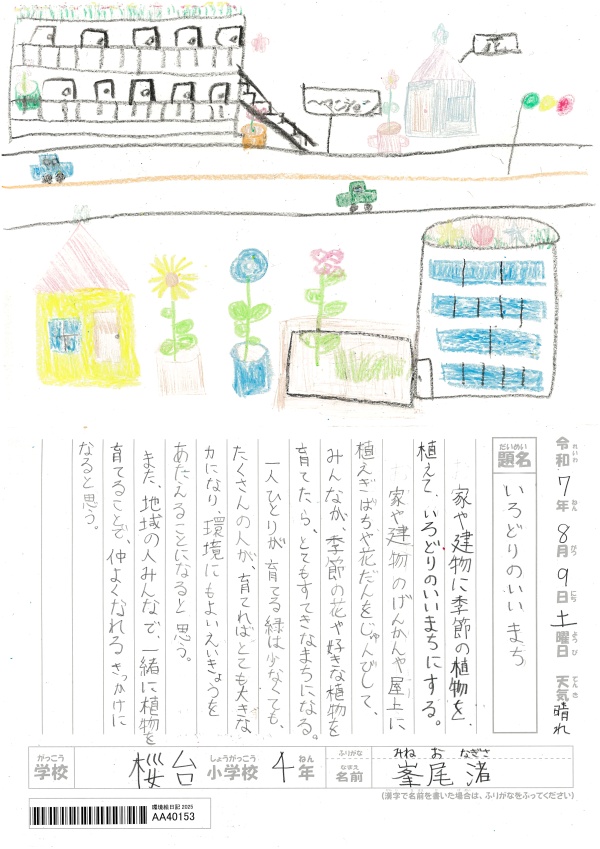 花
マンション
令和7年8月9日土曜日 天気晴れ
れいわ ねん がつ にち ようび てんき
題名 いろどりのいいまち
だいめい
家や建物に季節の植物を、
植えて、いろどりのいいまちにする。
家や建物のげんかんや屋上に
植えきばちや花だんをじゅんびして、
みんなが、季節の花や好きな植物を
育てたら、とてもすてきなまちになる。
一人ひとりが育てる緑は少なくても、
たくさんの人が、育てればとても大きな
力になり、環境にもよいえいきょうを
あたえることになると思う。
また、地域の人みんなで一緒に植物を
育てることで、仲よくなれるきっかけに
なると思う。
がっこう しょうがっこう ねん ふりがな みね お なぎさ
学校 桜台 小学校 4年 なまえ 名前 峯尾 渚
(漢字で名前を書いた場合は、ふりがなをふってください)
環境絵日記 2025
AA40153